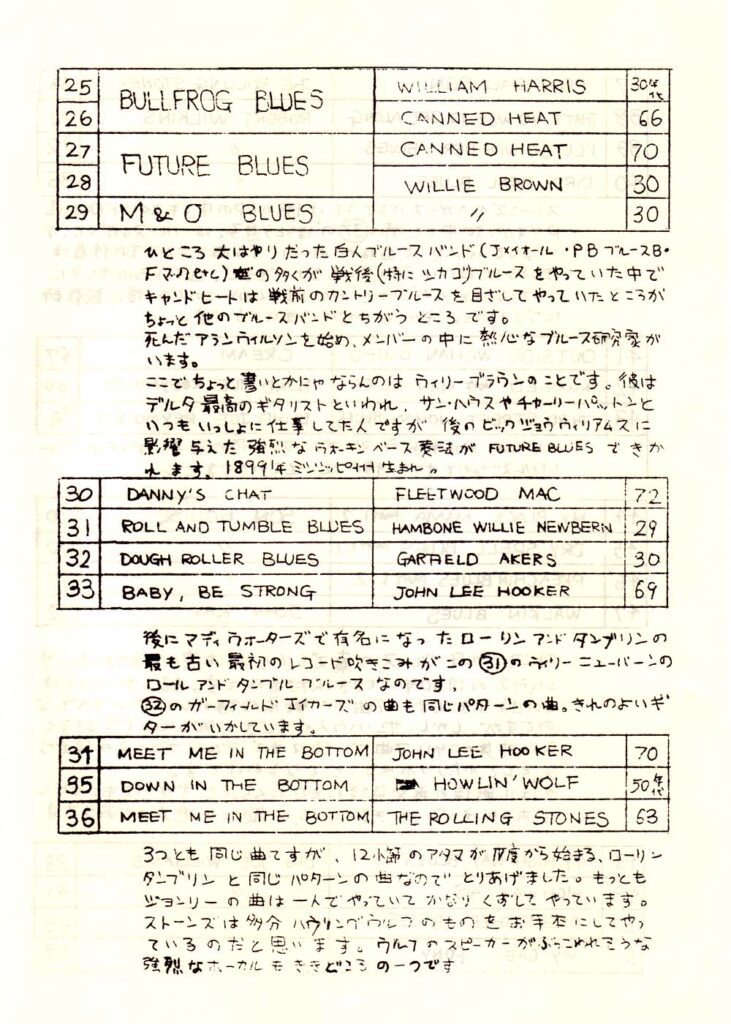 25 BULLFROG BLUES WILLIAM HARRIS 30年代
26 CANNED HEAT 66
27 FUTURE BLUES CANNED HEAT 70
28 WILLIE BROWN 30
29 M & O BLUES 〃 30
ひところ大はやりだった白人ブルースバンド(Jメイオール・PBブルースB・
Fマックetc)の多くが戦後(特にシカゴ)ブルースをやっていた中で
キャンドヒートは戦前のカントリーブルースを目ざしてやっていたところが
ちょっと他のブルースバンドとちがうところです。
死んだアランウィルソンを始め、メンバーの中に熱心なブルース研究家が
います。
ここでちょっと書いとかにゃならんのはウィリーブラウンのことです。彼は
デルタ最高のギタリストといわれ、サン・ハウスやチャーリーパットンと
いつもいっしょに仕事してた人ですが後のビックジョウウィリアムスに
影響与えた強烈なウォーキンベース奏法がFUTURE BLUESできか
れます。1899年ミシシッピ州生まれ。
30 DANNY'S CHAT FLEETWOOD MAC 72
31 ROLL AND TUMBLE BLUES HAMBONE WILLIE NEWBERN 29
32 DOUGH ROLLER BLUES GARFIELD AKERS 30
33 BABY, BE STRONG JOHN LEE HOOKER 69
後にマディウォーターズで有名になったローリンアンドタンブリンの
最も古い最初のレコード吹きこみがこの㉛のウィリーニューバーンの
ロールアンドタンブルブルースなのです。
㉜のガーフィールドエイカーズの曲も同じパターンの曲。きれのよいギ
ターがいかしています。
34 MEET ME IN THE BOTTOM JOHN LEE HOOKER 70
35 DOWN IN THE BOTTOM HOWLIN' WOLF 50年代
36 MEET ME IN THE BOTTOM THE ROLLING STONES 63
3つとも同じ曲ですが、12小節のアタマが度から始まる、ローリン
タンブリンと同じパターンの曲なのでとりあげました。もっとも
ジョンリーの曲は一人でやっていてかなりくずしてやっています。
ストーンズは多分ハウリングウルフのものをお手本にしてやっ
ているのだと思います。ウルフのスピーカーがぶっこわれそうな
強烈なボーカルもききどころの一つです